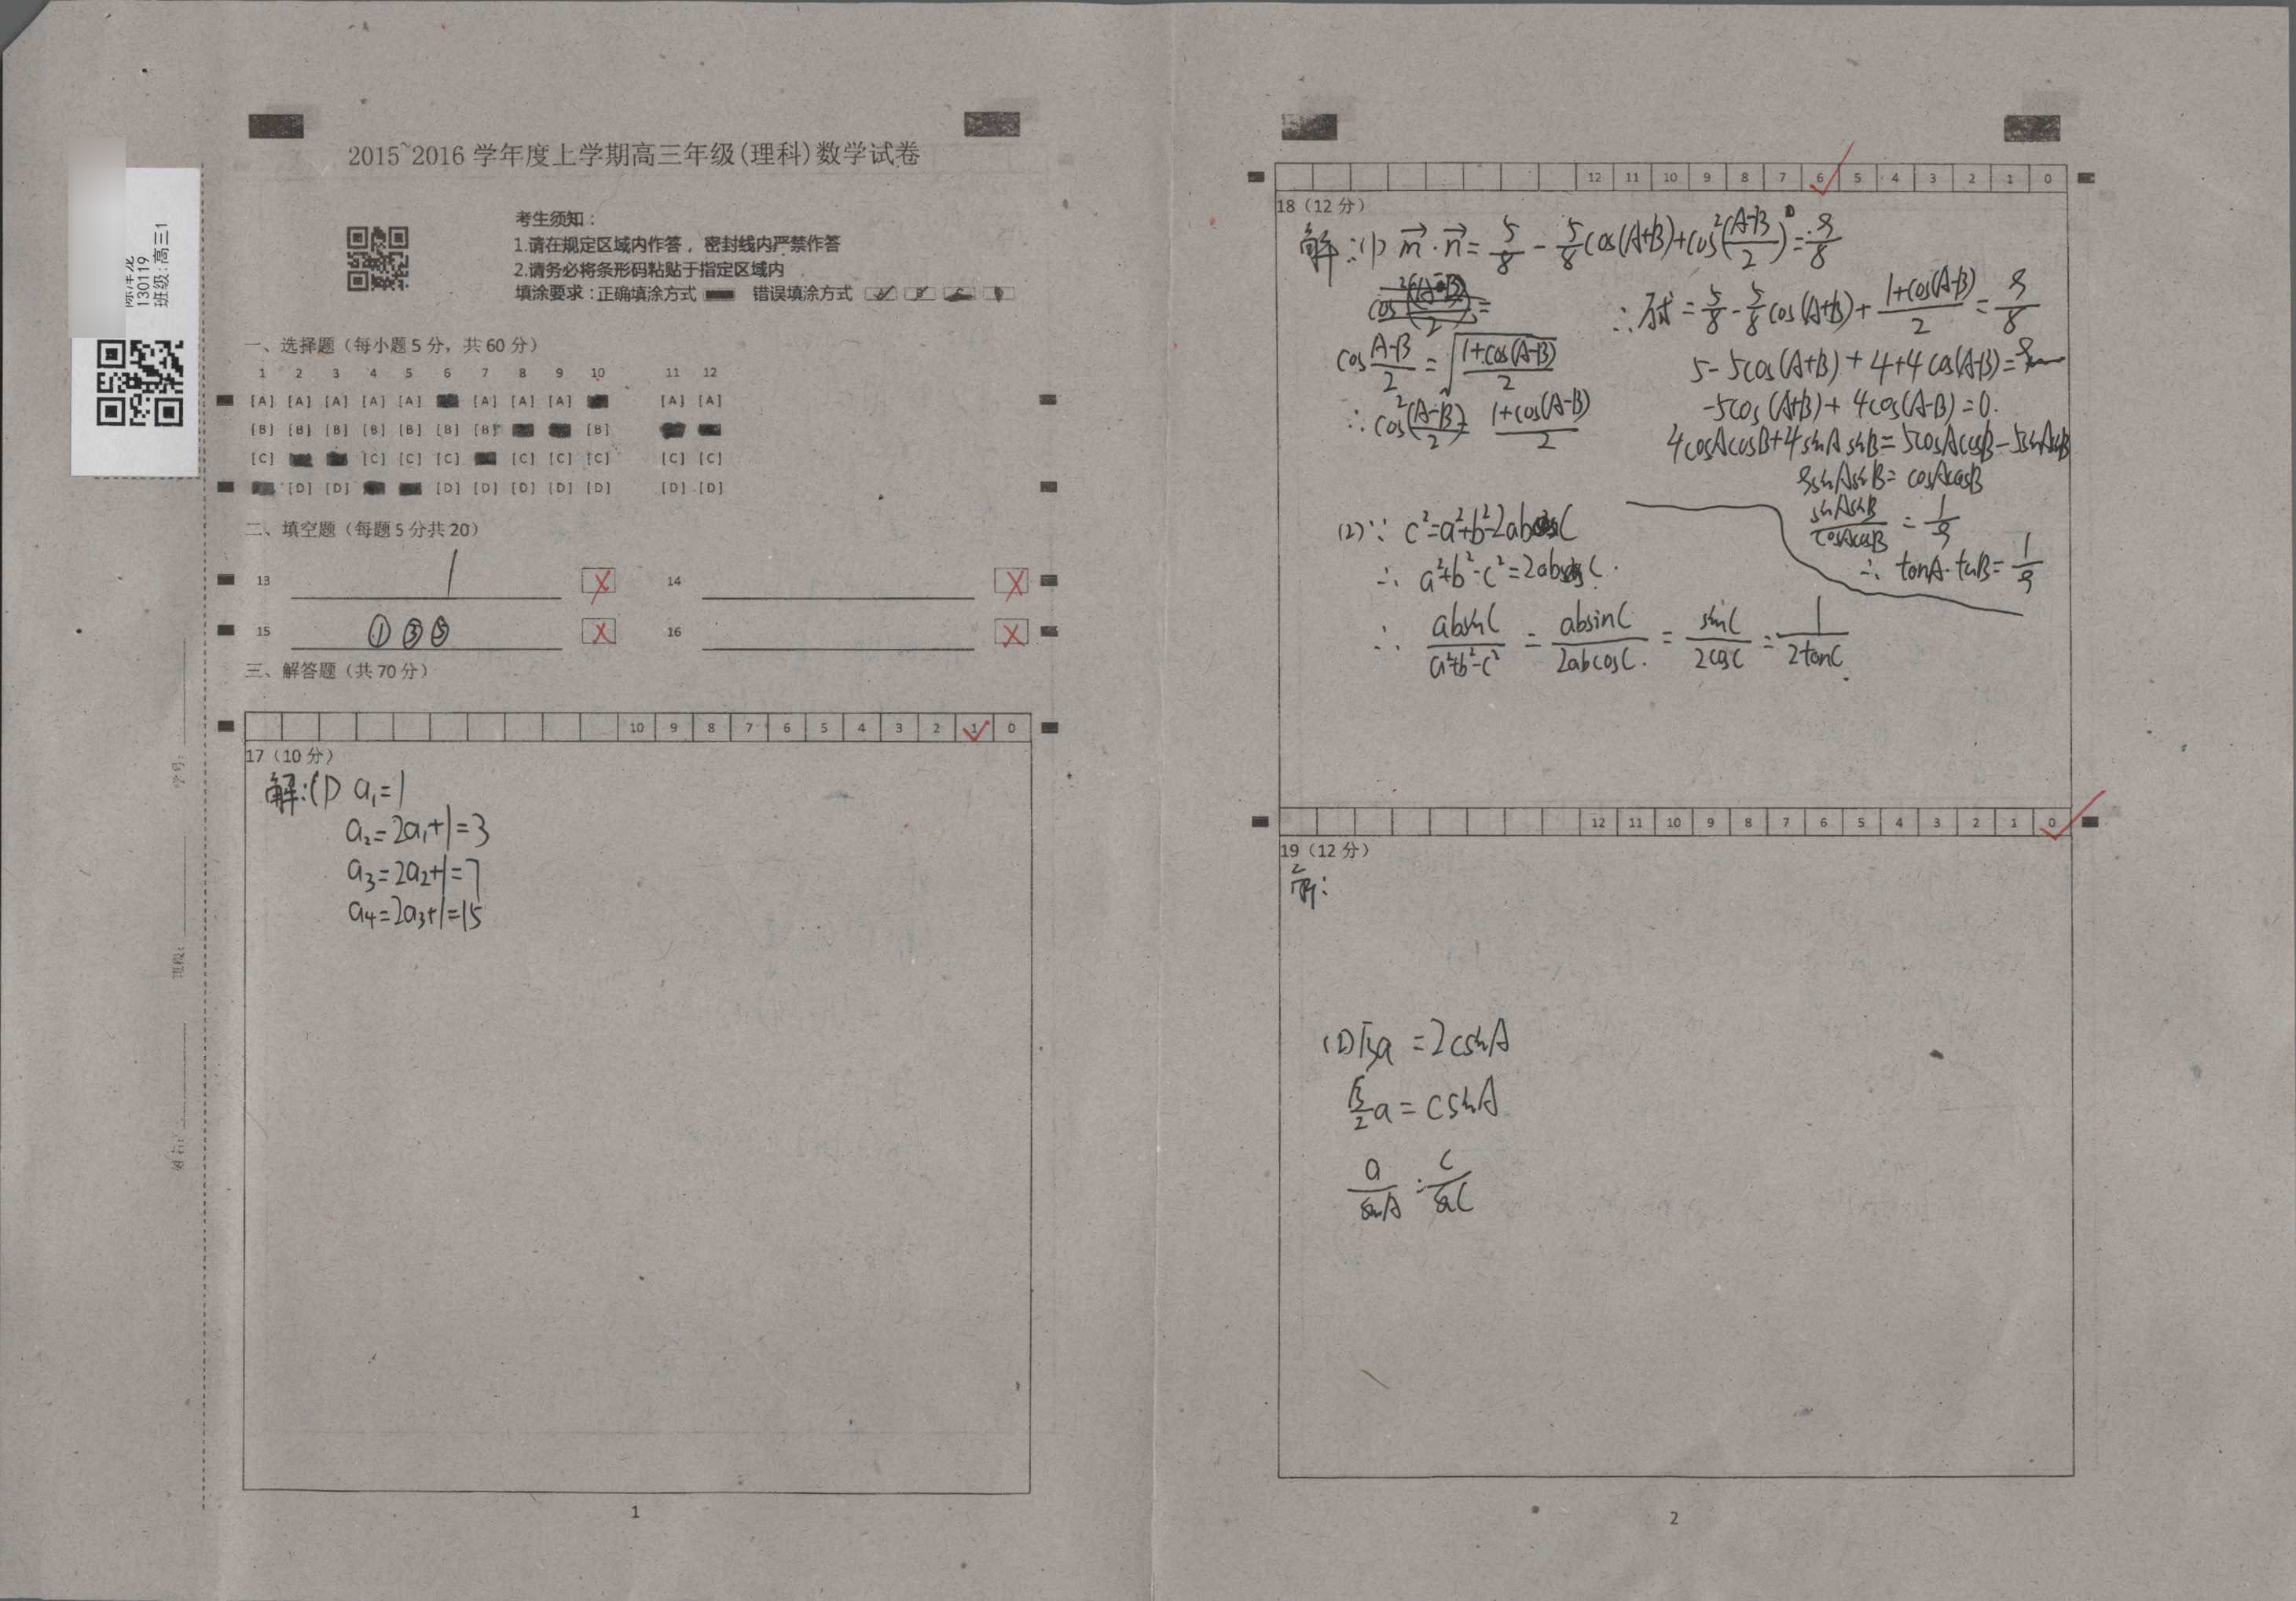 130119
班级:高三1
2015~2016 学年度上学期高三年级(理科)数学试卷
考生须知:
1.请在规定区域内作答，密封线内严禁作答
2.请务必将条形码粘贴于指定区域内
填涂要求:正确填涂方式 错误填涂方式
一、选择题（每小题5分，共60分）
1 2 3 4 5 6 7 8 9 10 11 12
[A] [A] [A] [A] [A] [A] [A] [A] [A] [A]
[B] [B] [B] [B] [B] [B] [B] [B]
[C] [C] [C] [C] [C] [C] [C] [C] [C]
[D] [D] [D] [D] [D] [D] [D] [D] [D]
二、填空题（每题5分共20）
13 1 14
15 ①③⑤ 16
三、解答题（共70分）
10 9 8 7 6 5 4 3 2 1 0
17（10分）
解:(1) a₁=1
a₂=2a₁+1=3
a₃=2a₂+1=7
a₄=2a₃+1=15
1
学号:
班级:
姓名:
12 11 10 9 8 7 6 5 4 3 2 1 0
18（12分）
解:(1) m⃗·n⃗=5/8-5/8cos(A+B)+cos²(A-B)/2=9/8
∴原式=5/8-5/8cos(A+B)+(1+cos(A-B))/2=9/8
cos(A-B)/2=√((1+cos(A-B))/2)
5-5cos(A+B)+4+4cos(A-B)=9
∴cos²(A-B)/2=(1+cos(A-B))/2
-5cos(A+B)+4cos(A-B)=0.
4cosAcosB+4sinAsinB=5cosAcosB-5sinAsinB
9sinAsinB=cosAcosB
sinAsinB/cosAcosB=1/9
∴tanA·tanB=1/9
(2)∵c²=a²+b²-2abcosC
∴a²+b²-c²=2abcosC.
∴absinC/(a²+b²-c²)=absinC/2abcosC.=sinC/2cosC=1/2tanC.
12 11 10 9 8 7 6 5 4 3 2 1 0
19（12分）
解:
(1)√3a=2csinA
√3/2a=csinA
a/sinA=c/sinC
2